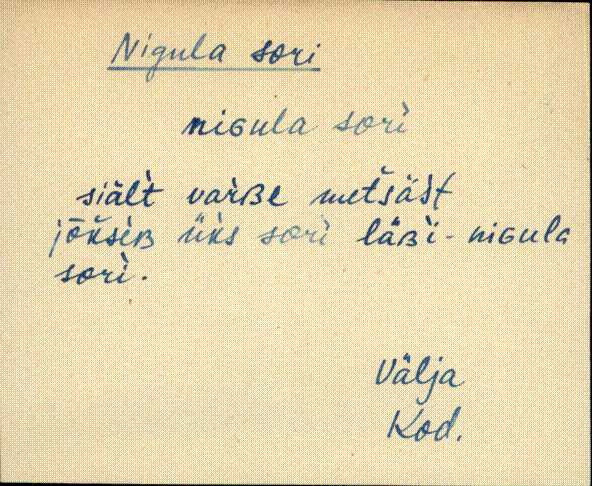 Nigula sori
niɢula sorì
siält varʙe metsäst
jõkseʙ üks sorì läʙi - niɢula
sorì.
Välja
Kod.